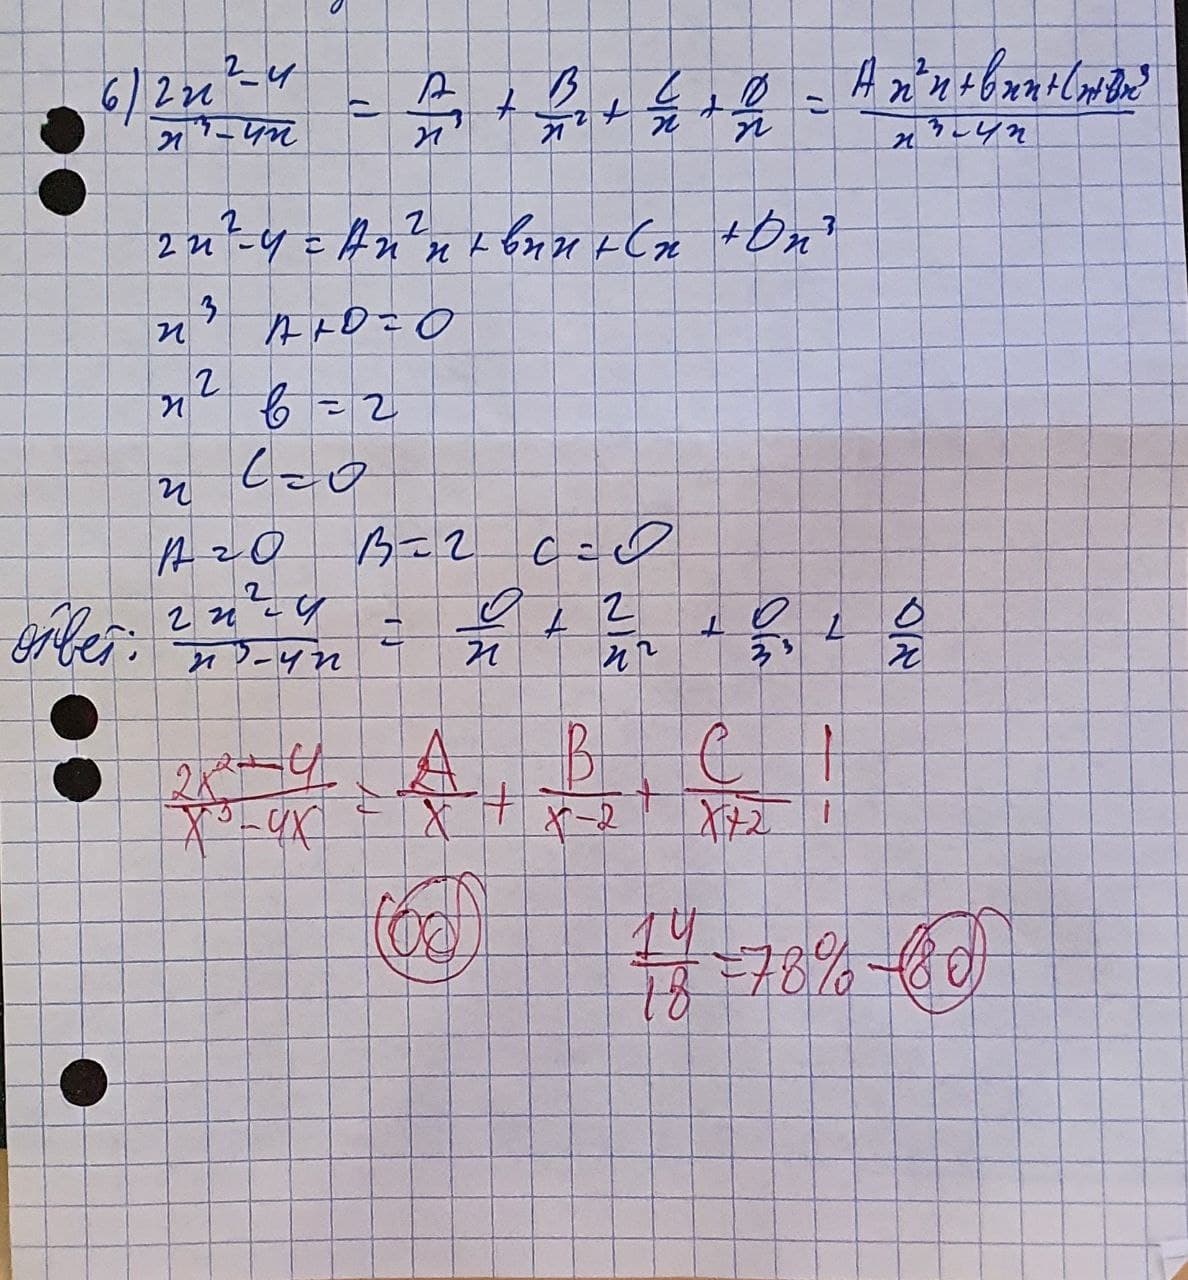 б) (2x²-4)/(x³-4x) = A/x³ + B/x² + C/x + D/x = (Ax²x+Bxx+Cx+Dx³)/(x³-4x)
2x²-4 = Ax²x + Bxx + Cx + Dx³
x³ A+D=0
x² B=2
x C=0
A=0 B=2 C=0
Ответ: (2x²-4)/(x³-4x) = 0/x + 2/x² + 0/3³ + 0/x
(2x²-4)/(x³-4x) = A/x + B/(x-2) + C/(x+2) !
14/18 = 78% -